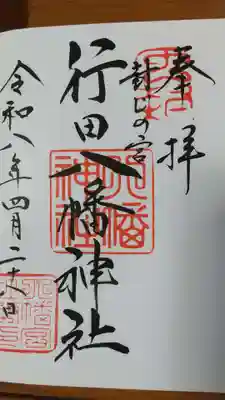 奉拝
封じの宮
行田八幡神社
令和八年四月二十八日